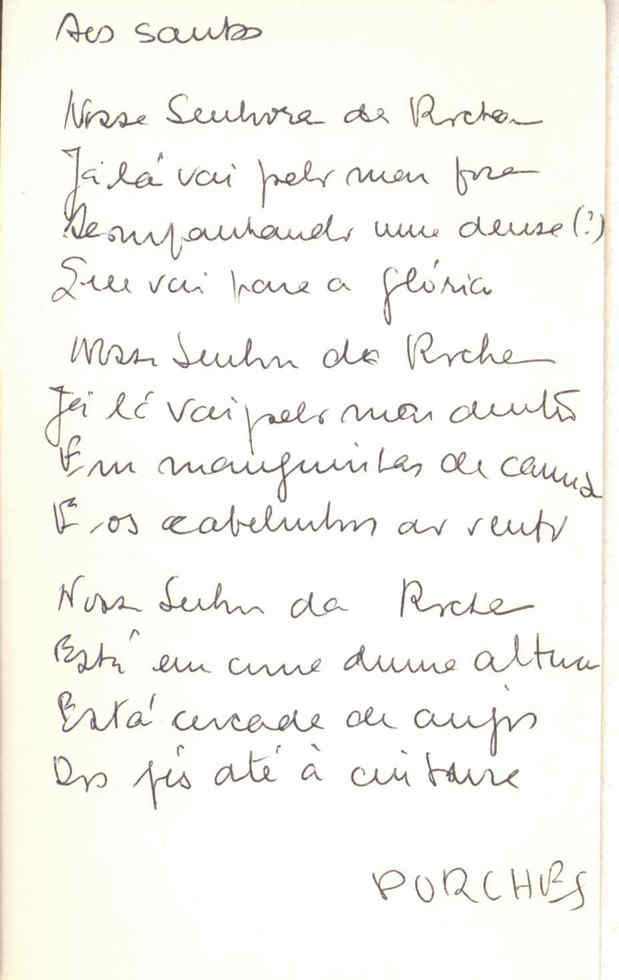 Aos santos
Nossa Senhora da Rocha
Já lá vai pelo mar fora
Acompanhando uma deusa (?)
Que vai para a glória
Nossa Senhora da Rocha
Já lá vai pelo mar dentro
Em manguinhas de camisa
E os cabelinhos ao vento
Nossa Senhora da Rocha
Está em cima duma altura
Está cercada de anjos
Dos pés até à cintura
PORCHES